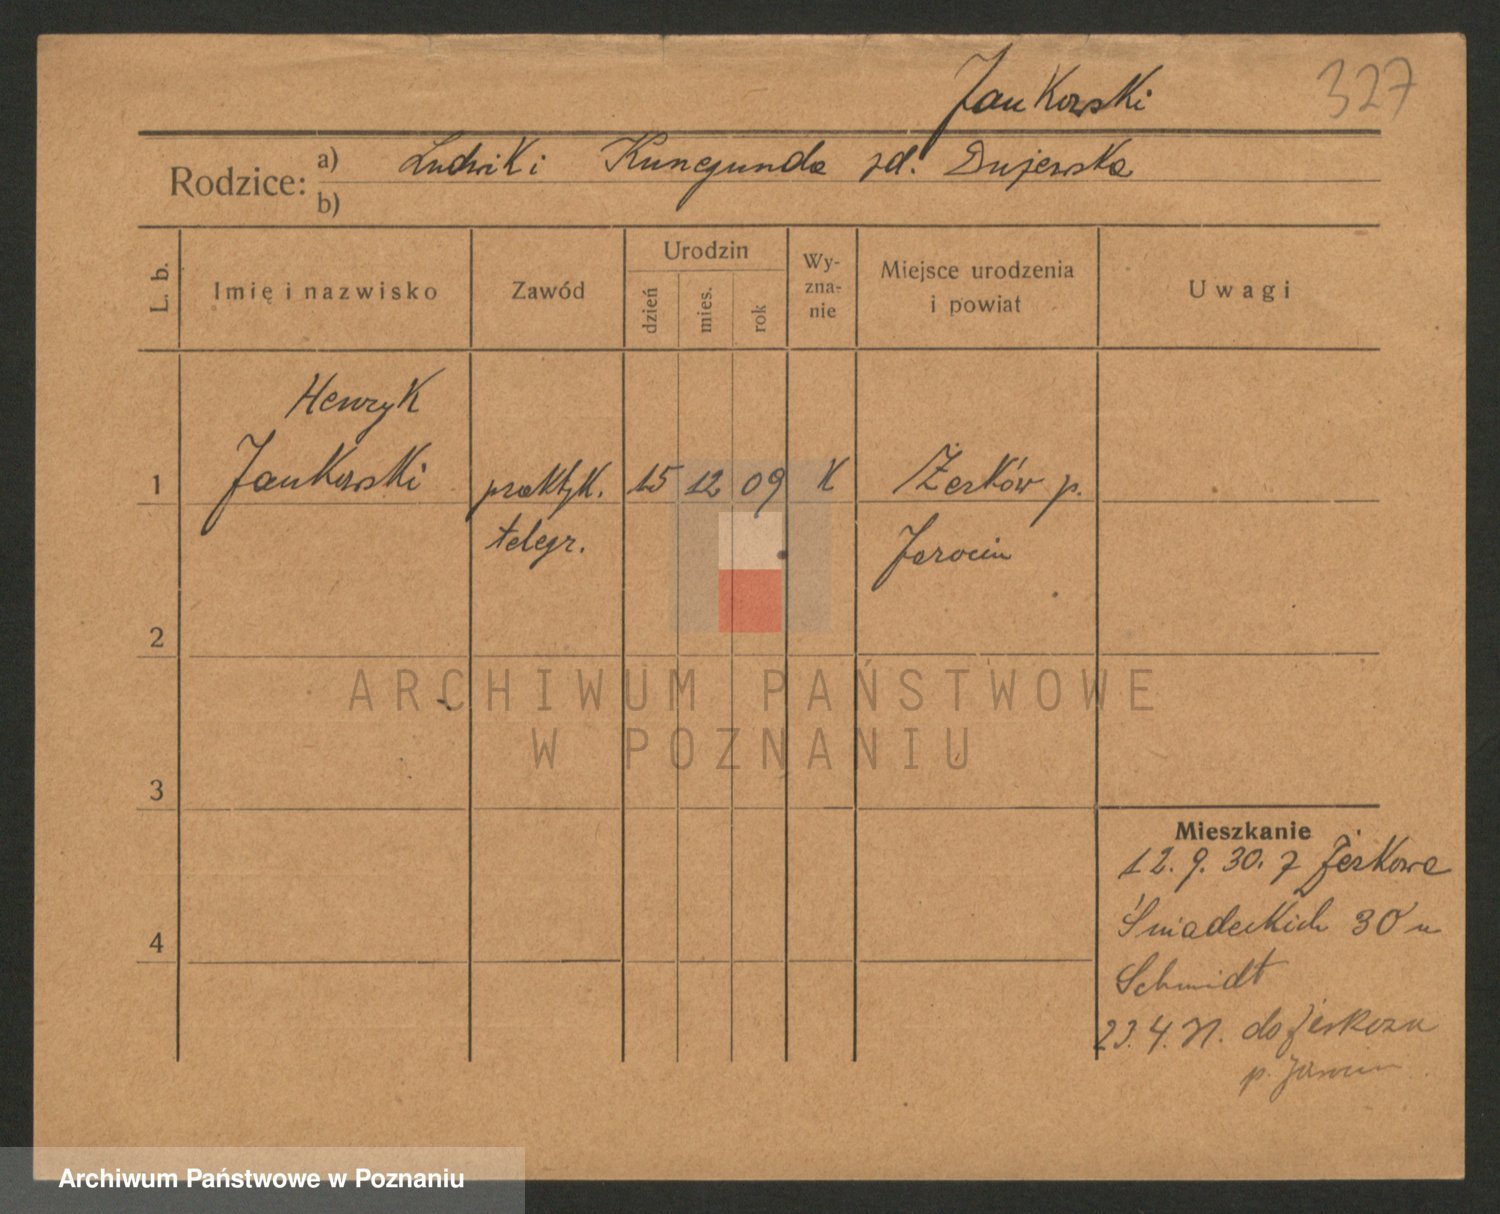 Jankowski
327
Rodzice:
a) Ludwik i Kunegunda zd.
b)
L. b.
Imię i nazwisko
Zawód
Urodzin
dzień
mies.
rok
Wy-
zna-
nie
Miejsce urodzenia
i powiat
Uwagi
Henryk
1 Jankowski praktyk. 15 12 09 K Żerków p.
telegr. Jarocin
2
ARCHIWUM PAŃSTWOWE
W POZNANIU
3
Mieszkanie
12. 9. 30. z Żerkowa
4
Śniadeckich 30 u
Schmidt
23. 4. 31. do Żerkowa
p. Jarocin
Archiwum Państwowe w Poznaniu